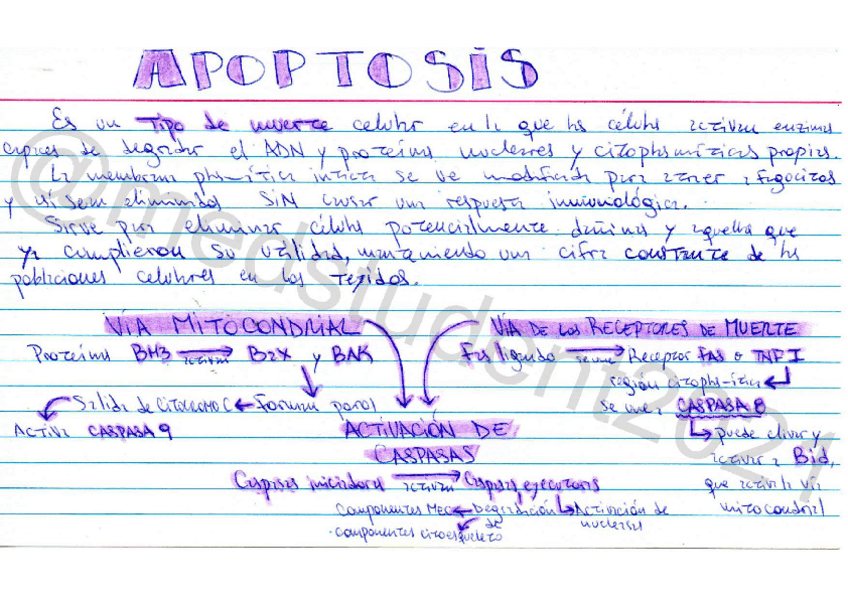 APOPTOSIS
Es un tipo de muerte celular en la que las células activan enzimas
capaces de degradar el ADN y proteínas nucleares y citoplasmáticas propias.
La membrana plasmática intacta se ve modificada para atraer a fagocitos
y así sean eliminados SIN causar una respuesta inmunológica.
Sirve para eliminar células potencialmente dañinas y aquellas que
ya cumplieron su utilidad, manteniendo una cifra constante de las
poblaciones celulares en los tejidos.
VÍA MITOCONDRIAL
VÍA DE LOS RECEPTORES DE MUERTE
Proteína BH3 activan BAX y BAK
Fas ligando se une Receptor FAS o TNF I
región citoplasmática
Salida de CITOCROMO C Forman poros
se une a CASPASA 8
Activa CASPASA 9
ACTIVACIÓN DE
CASPASAS
puede clivar y
activar a Bid,
que activa la vía
mitocondrial
Caspasas iniciadoras activan Caspasas ejecutoras
Componentes MEC Degradación de Activación de
nucleasas
componentes citoesqueleto
@medstudent2021